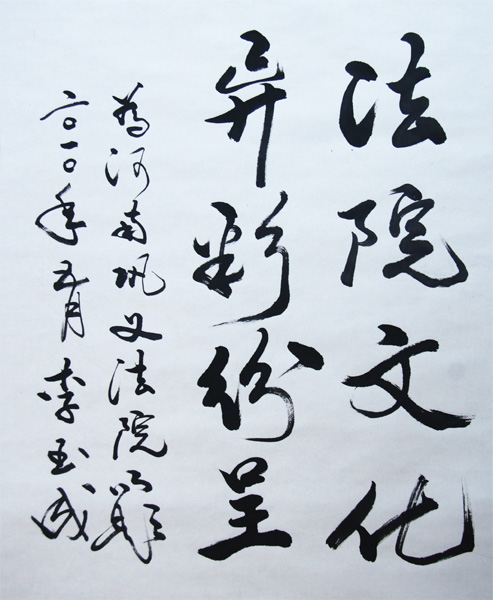 法院文化
异彩纷呈
为河南巩义法院题
二〇一〇年五月李玉成